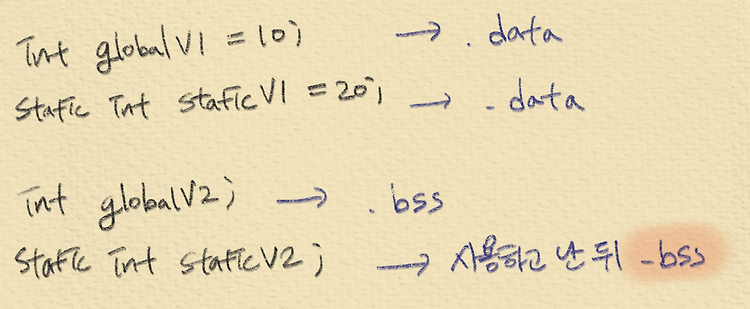 int globalV1 = 10; → .data
static int staticV1 = 20; → .data
int globalV2; → .bss
static int staticV2; → 사용하고 난 뒤 .bss